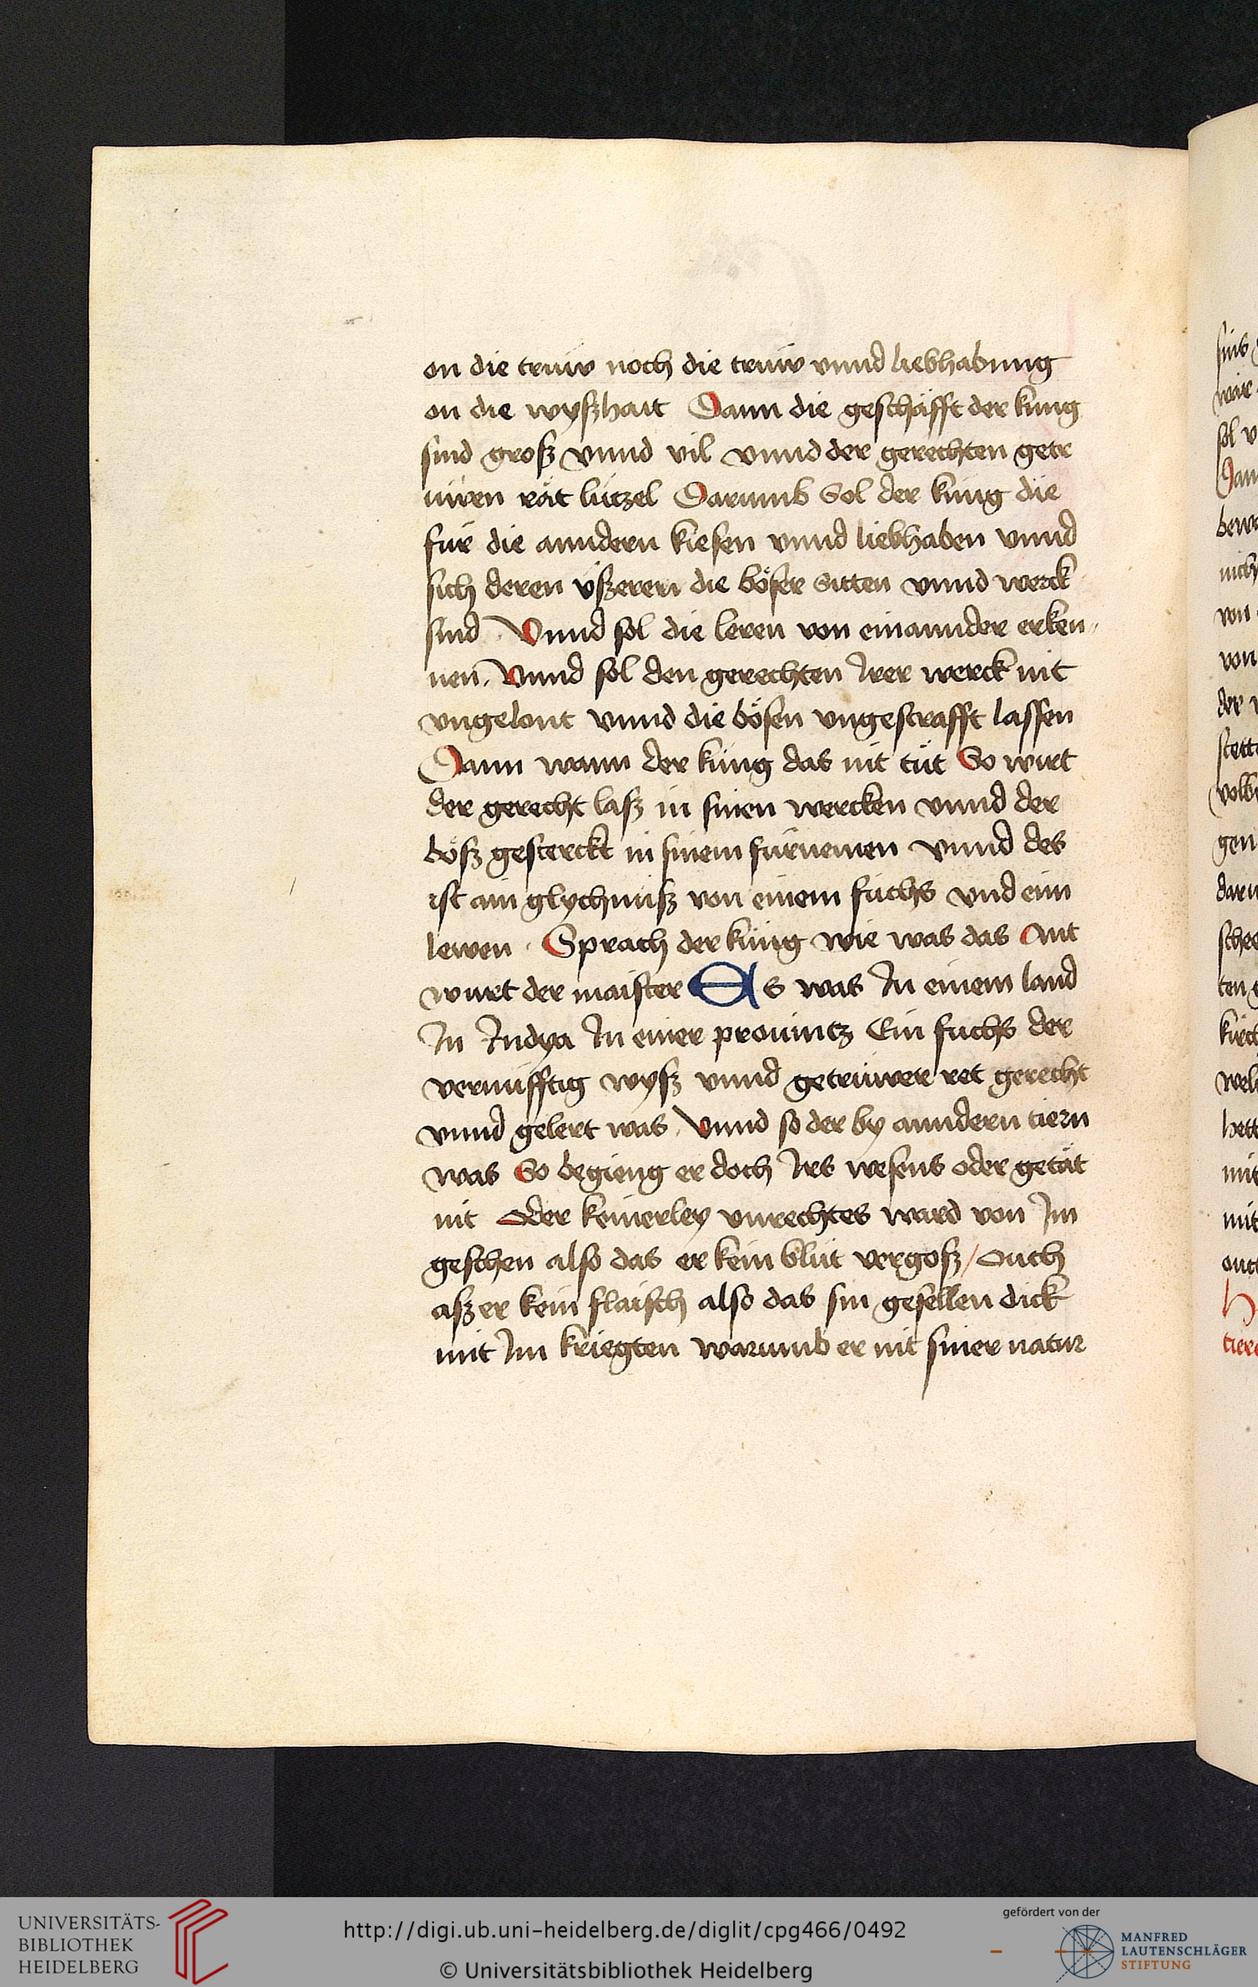 on die truw noch die truw vnnd liebhabung
on die wyszhait Dann die geschäfft der kung
sind grosz vnnd vil vnnd der gerechten getr
üwen rät lutzel Darumb sol der kung die
für die anndern kiesen vnnd liebhaben vnnd
sich deren üszeren die böser sitten vnnd werck
sind Vnnd sol die leren von einannder erken„
nen. Vnnd sol den gerechten Irer werck nit
vngelont vnnd die bösen vngestrafft lassen
Dann wann der küng das nit tüt So wirt
der gerecht lasz in sinen wercken vnnd der
bösz gesterckt in sinem fürnemen vnnd des
ist ain glychnisz von einem fuchs vnd eim
lewen . Sprach der küng wie was das Ant
wurt der maister Es was In einem land
In Indya In einer prouintz Ein fuchs der
vernüfftig wysz vnnd getrüwer ret gerecht
vnnd gelert was . Vnnd so der by anndern tiern
was So begieng er doch Irs wesens oder getät
nit Oder keinerley vnrechtes ward von Im
geschen also das er kein blüt vergosz / Ouch
asz er kein flaisch also das sin gesellen dick
mit Im kriegten warumb er nit siner natur
UNIVERSITÄTS-
BIBLIOTHEK
HEIDELBERG
http://digi.ub.uni-heidelberg.de/diglit/cpg466/0492
© Universitätsbibliothek Heidelberg
gefördert von der
MANFRED
LAUTENSCHLÄGER
STIFTUNG